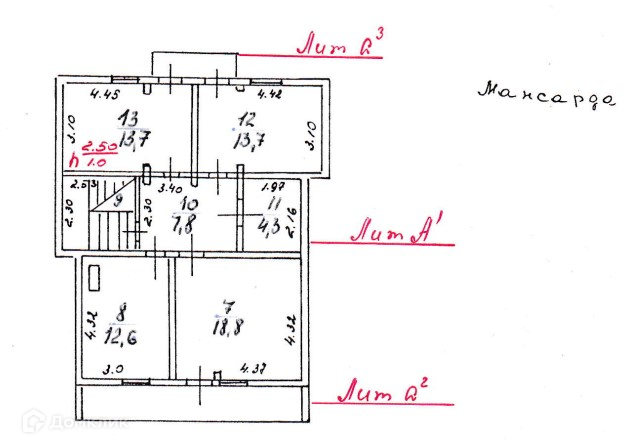 Лит а³
Мансарда
4.45
4.42
13
13,7
12
13,7
3.10
3.10
h 2.50
1.0
2.53
3.40
1.97
9
2.30
2.30
10
7,8
11
4,3
2.16
Лит А¹
8
12,6
7
18,8
4.32
4.32
3.0
4.37
Лит а²
Домклик